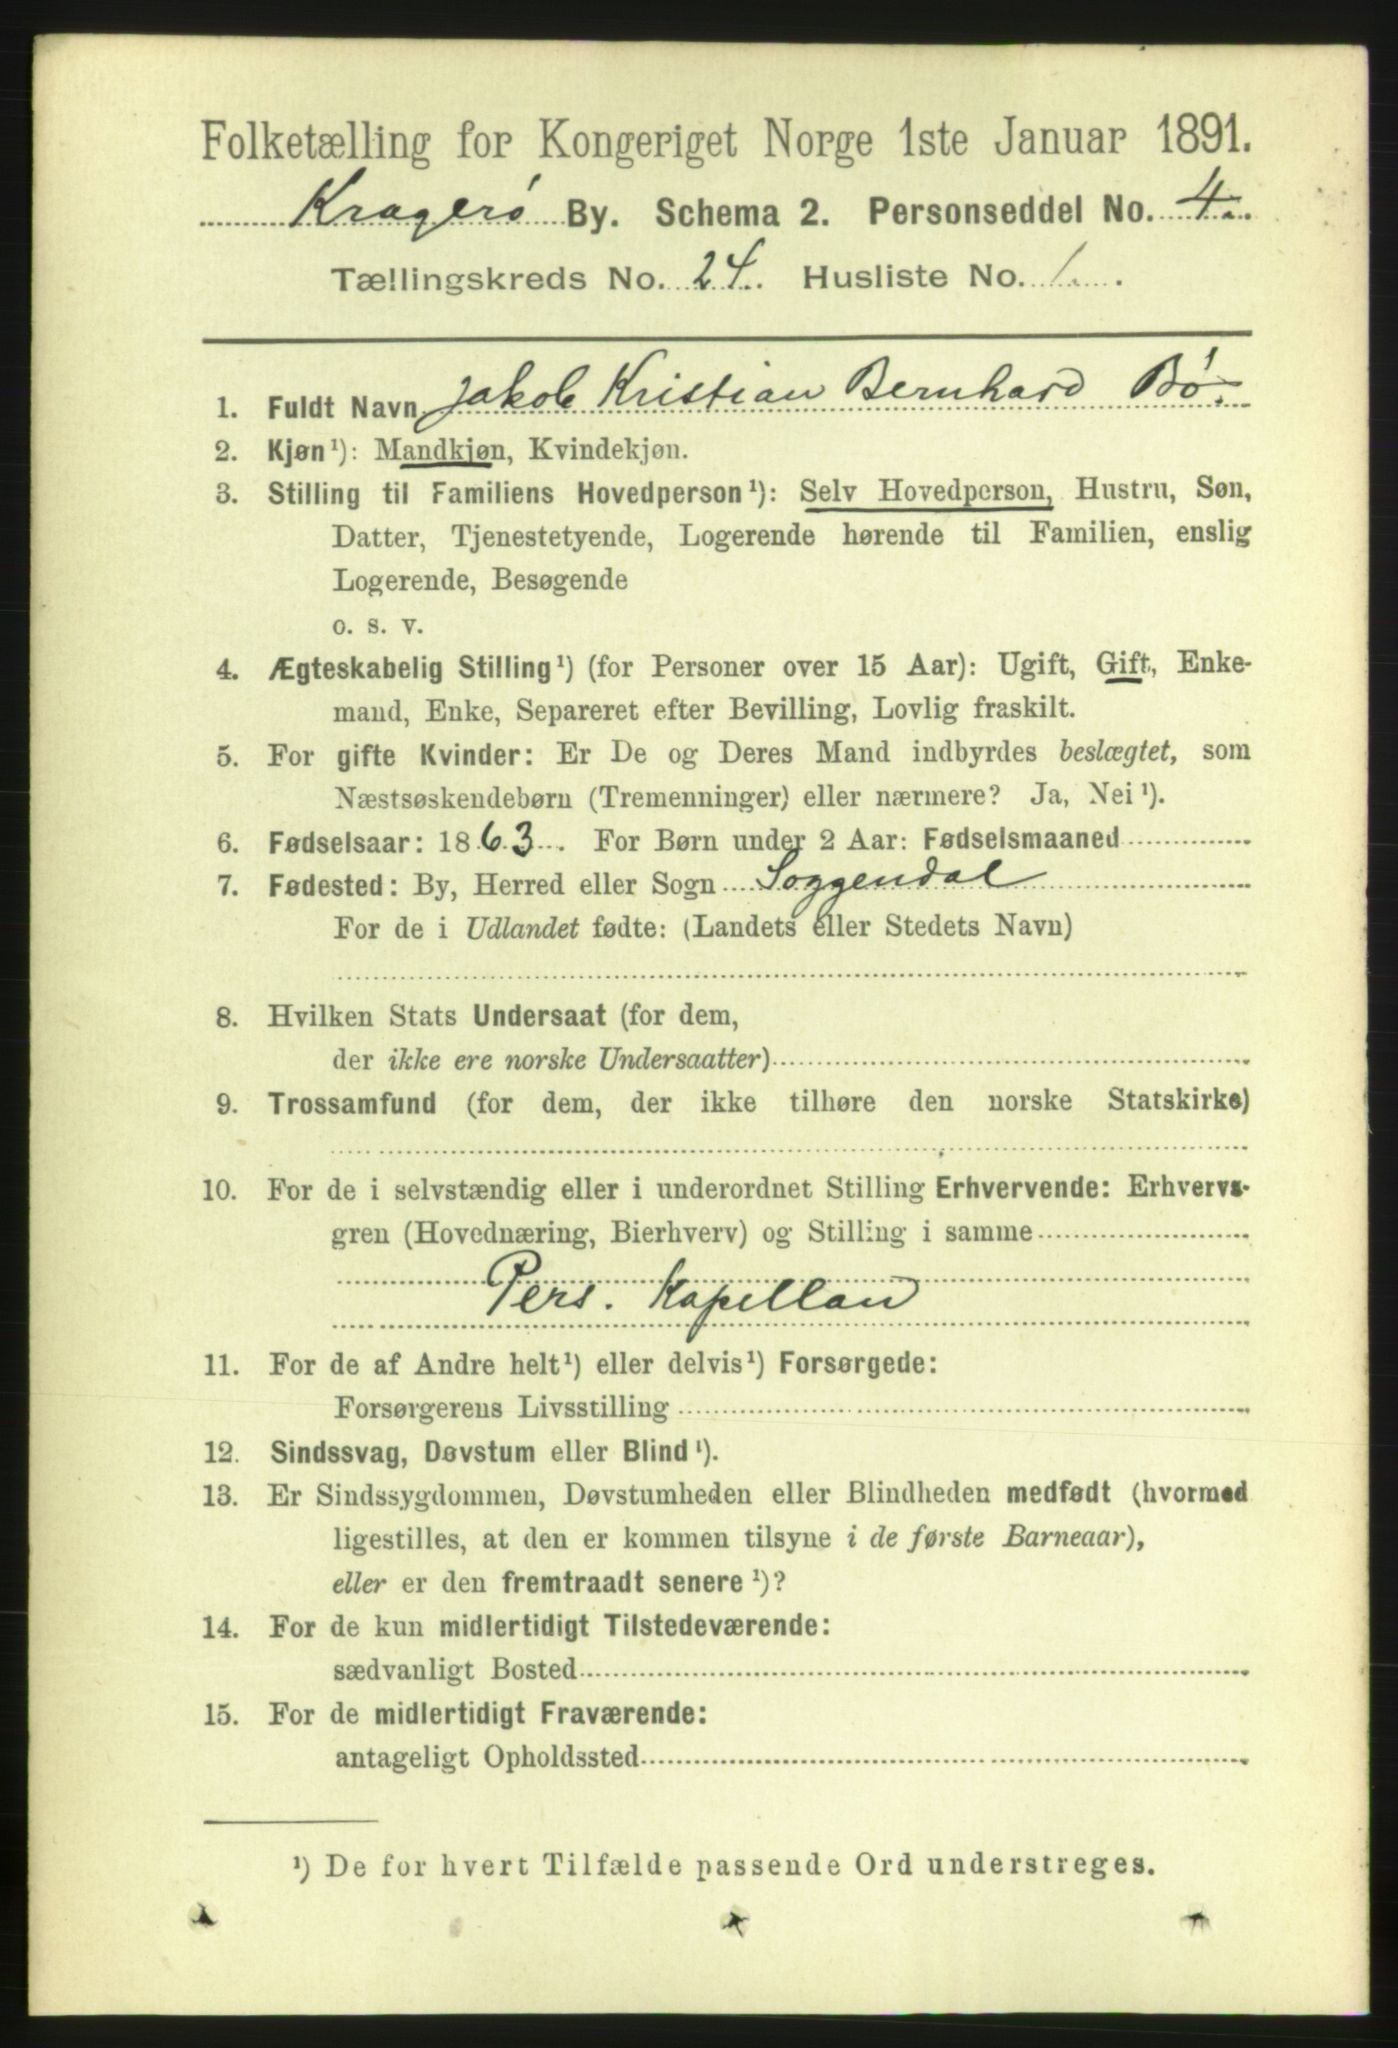 Folketælling for Kongeriget Norge 1ste Januar 1891.
Kragerø By. Schema 2. Personseddel No. 4.
Tællingskreds No. 24. Husliste No. 1.
1. Fuldt Navn Jakob Kristian Bernhard Bø.
2. Kjøn¹): Mandkjøn, Kvindekjøn.
3. Stilling til Familiens Hovedperson¹): Selv Hovedperson, Hustru, Søn,
Datter, Tjenestetyende, Logerende hørende til Familien, enslig
Logerende, Besøgende
o. s. v.
4. Ægteskabelig Stilling¹) (for Personer over 15 Aar): Ugift, Gift, Enke-
mand, Enke, Separeret efter Bevilling, Lovlig fraskilt.
5. For gifte Kvinder: Er De og Deres Mand indbyrdes beslægtet, som
Næstsøskendebørn (Tremenninger) eller nærmere? Ja, Nei¹).
6. Fødselsaar: 1863. For Børn under 2 Aar: Fødselsmaaned
7. Fødested: By, Herred eller Sogn Soggendal
For de i Udlandet fødte: (Landets eller Stedets Navn)
8. Hvilken Stats Undersaat (for dem,
der ikke ere norske Undersaatter)
9. Trossamfund (for dem, der ikke tilhøre den norske Statskirke)
10. For de i selvstændig eller i underordnet Stilling Erhvervende: Erhvervs-
gren (Hovednæring, Bierhverv) og Stilling i samme
Pers. Kapellan
11. For de af Andre helt¹) eller delvis¹) Forsørgede:
Forsørgerens Livsstilling
12. Sindssvag, Døvstum eller Blind¹).
13. Er Sindssygdommen, Døvstumheden eller Blindheden medfødt (hvormed
ligestilles, at den er kommen tilsyne i de første Barneaar),
eller er den fremtraadt senere¹)?
14. For de kun midlertidigt Tilstedeværende:
sædvanligt Bosted
15. For de midlertidigt Fraværende:
antageligt Opholdssted
¹) De for hvert Tilfælde passende Ord understreges.